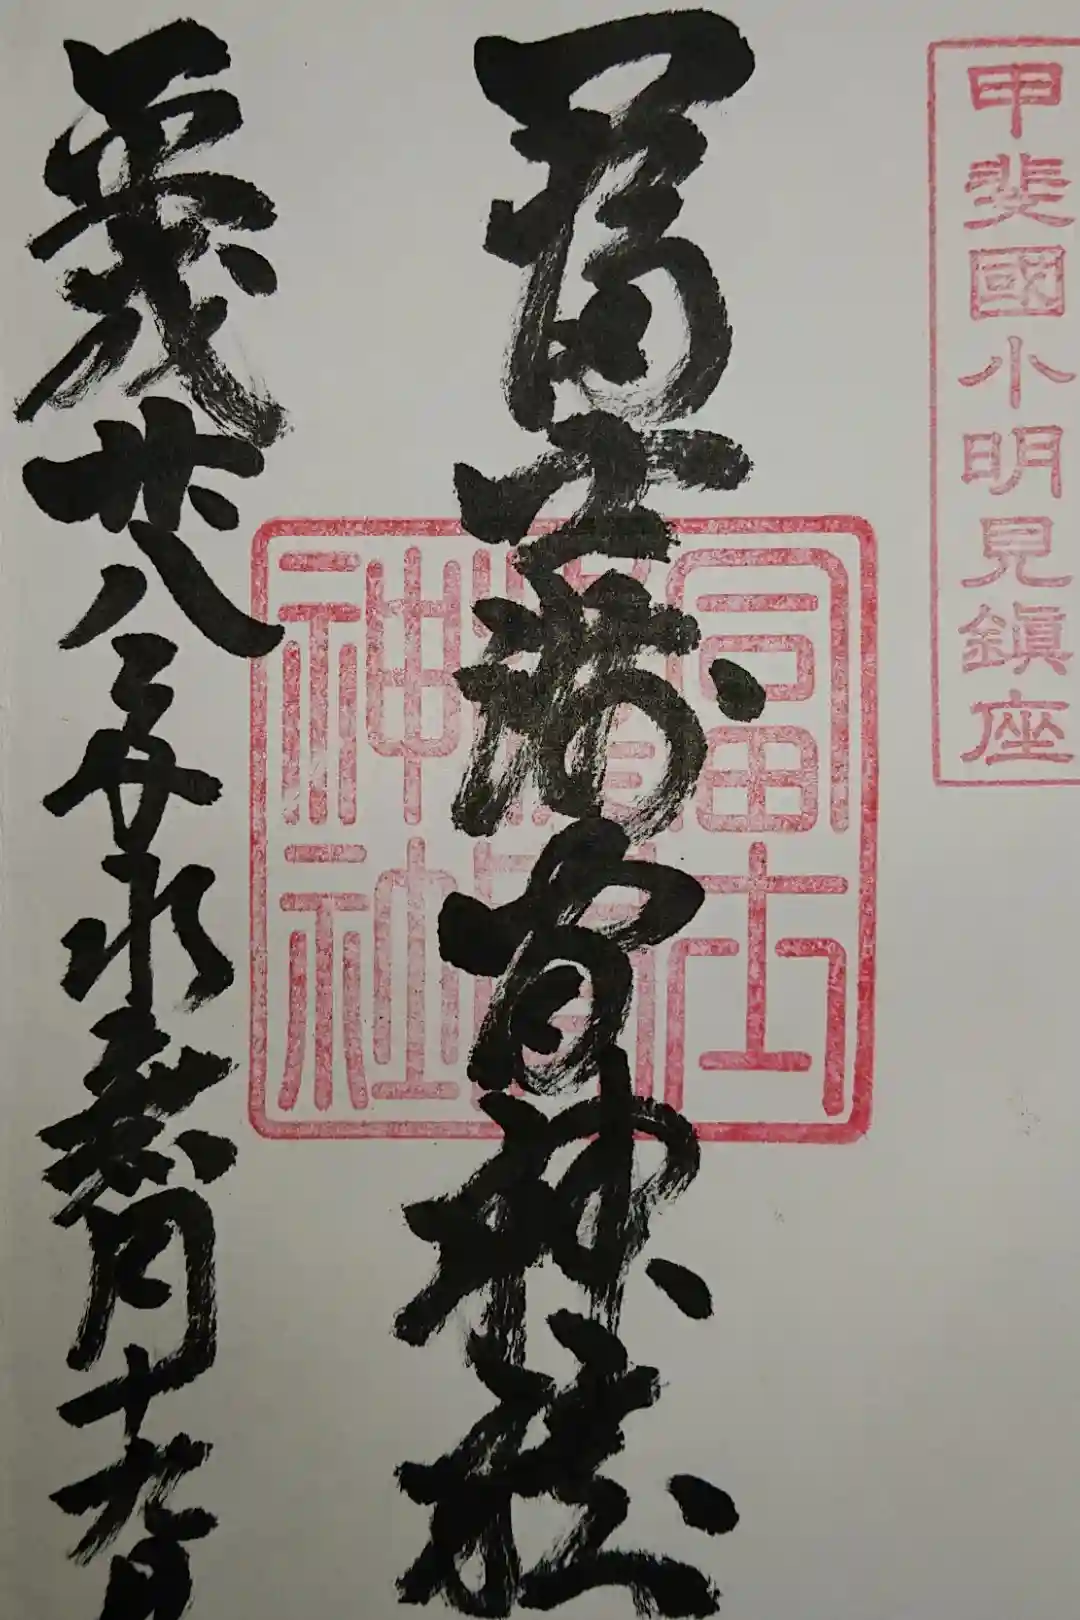 甲斐國小明見鎮座
富士浅間神社
平成廿八年水無月十九日
富士
神社